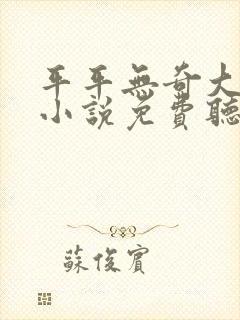 平平無奇大
小說免費聽
蘇俊賓